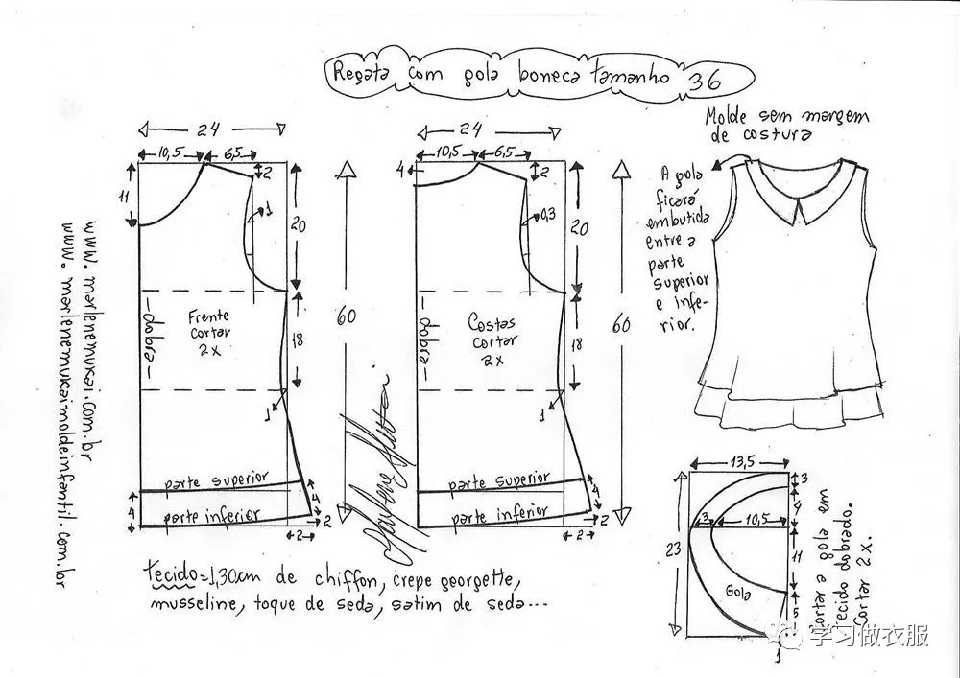 Regata com gola boneca tamanho 36
Molde sem margem
de costura
24
10,5
6,5
2
11
1
20
60
—dobra—
Frente
cortar
2x
18
1
parte superior
4
parte inferior
4
2
2
24
10,5
6,5
4
2
0,3
20
60
—dobra—
Costas
cortar
2x
18
1
parte superior
parte inferior
4
2
2
A gola
ficará
embutida
entre a
parte
superior
e infe-
rior.
www.marlenemukai.com.br
www.marlenemukaimoldeinfantil.com.br
Marlene Mukai
tecido=1,30cm de chiffon, crepe georgette,
musseline, toque de seda, satim de seda...
13,5
3
4
3
10,5
23
11
Gola
5
1
Cortar a gola em
tecido dobrado.
Cortar 2x.
学习做衣服